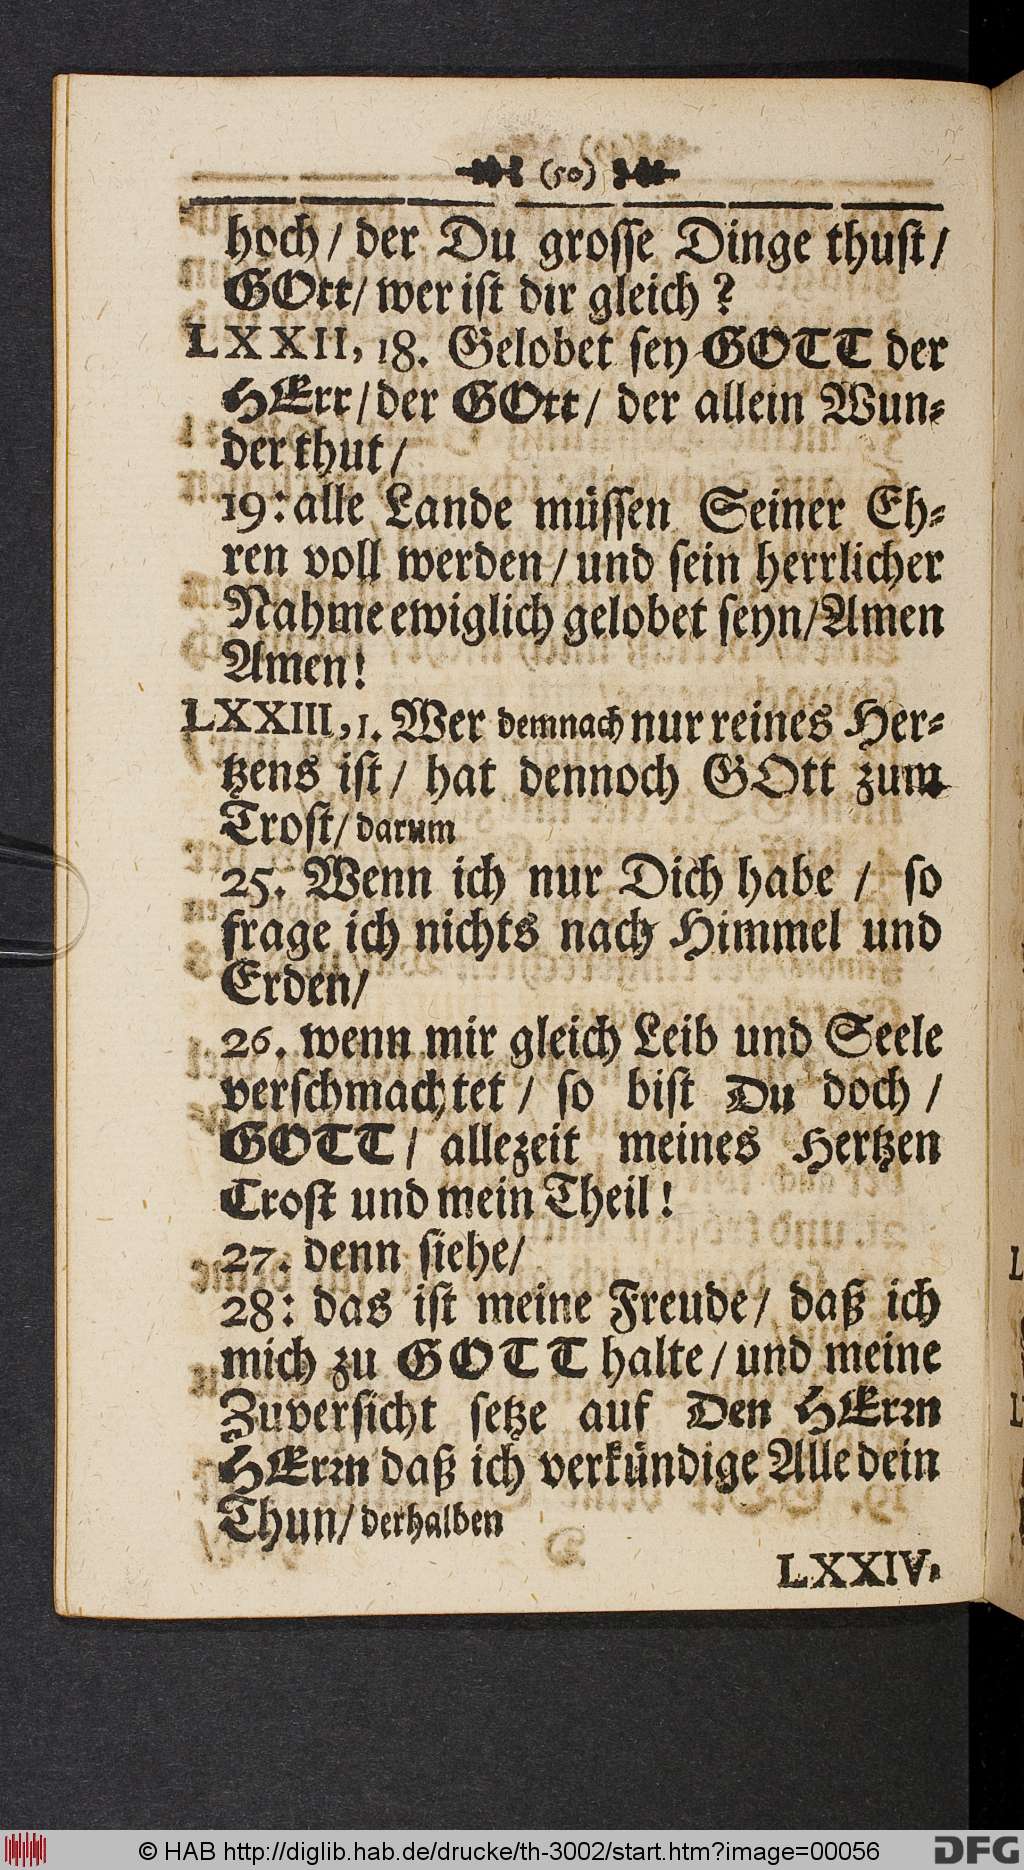 (50)
hoch/ der Du grosse Dinge thust/
GOtt/ wer ist dir gleich?
LXXII, 18. Gelobet sey GOTT der
HErr/ der GOtt/ der allein Wun-
der thut/
19: alle Lande müssen Seiner Eh-
ren voll werden/ und sein herrlicher
Nahme ewiglich gelobet seyn/ Amen
Amen!
LXXIII, 1. Wer demnach nur reines Her-
tzens ist/ hat dennoch GOtt zum
Trost/ darum
25. Wenn ich nur Dich habe / so
frage ich nichts nach Himmel und
Erden/
26. wenn mir gleich Leib und Seele
verschmachtet/ so bist Du doch/
GOTT/ allezeit meines Hertzen
Trost und mein Theil!
27. denn siehe/
28: das ist meine Freude/ daß ich
mich zu GOTT halte/ und meine
Zuversicht setze auf Den HErrn
HErrn daß ich verkündige Alle dein
Thun/ derhalben
LXXIV,
© HAB http://diglib.hab.de/drucke/th-3002/start.htm?image=00056
DFG